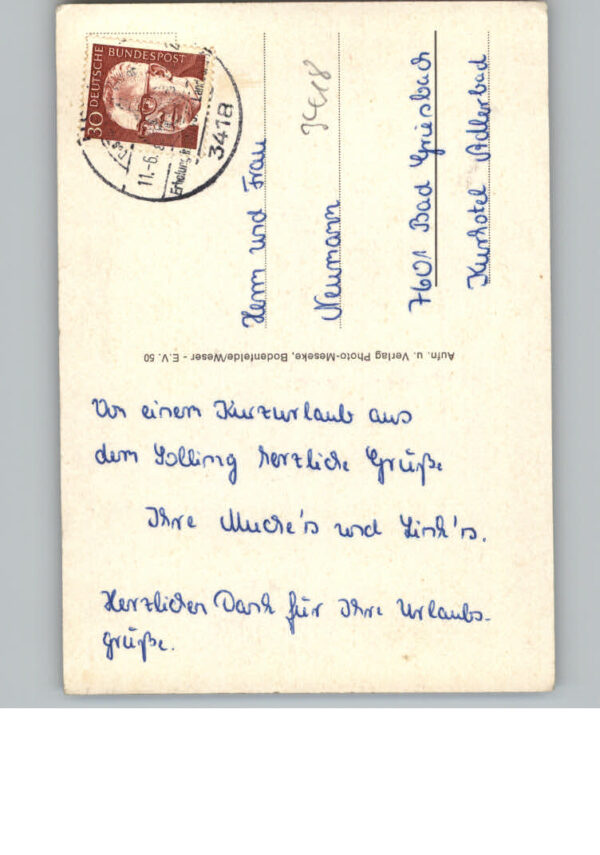 30 DEUTSCHE BUNDESPOST
11.-6.
3418
3418
Herrn und Frau
Neumann
7601 Bad Griesbach
Kurhotel Adlerbad
Aufn. u. Verlag Photo-Meseke, Bodenfelde/Weser - E.V. 50
Von einem Kurzurlaub aus
dem Solling herzliche Grüße
Ihre Muche's und Link's.
Herzlichen Dank für Ihre Urlaubs-
grüße.